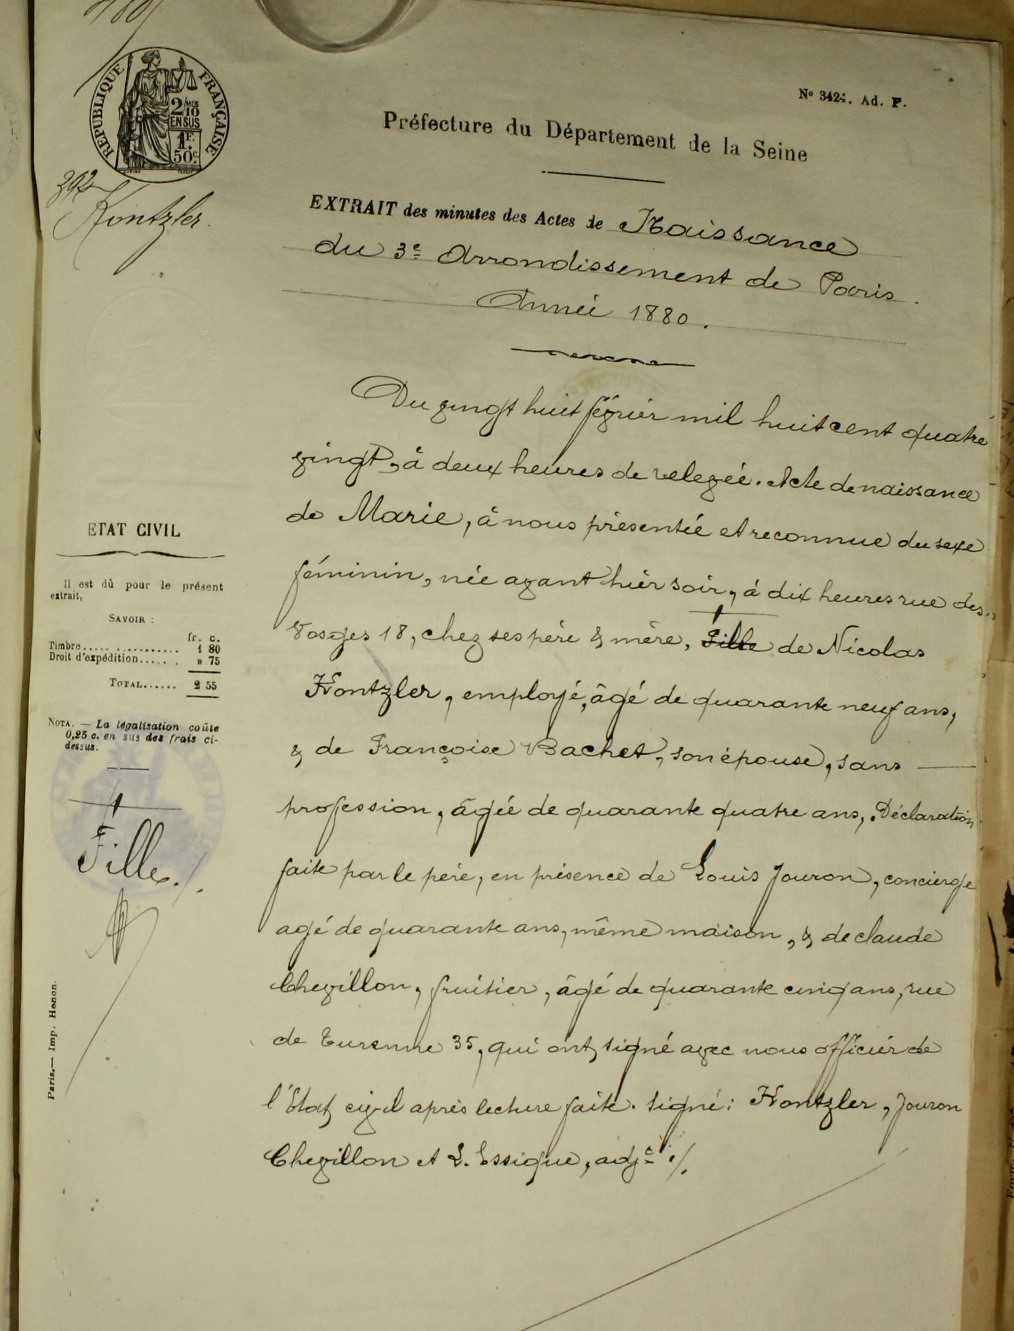 RÉPUBLIQUE FRANÇAISE
2/10
EN SUS
1F.
50c.
392
Kontzler.
No 342. Ad. P.
Préfecture du Département de la Seine
EXTRAIT des minutes des Actes de Naissance
du 3e Arrondissement de Paris.
Année 1880.
Du vingt huit février mil huit cent quatre
vingt, à deux heures de relevée. Acte de naissance
de Marie, à nous présentée et reconnue du sexe
féminin, née avant hier soir, à dix heures rue des
Vosges 18, chez ses père & mère, Fille de Nicolas
Kontzler, employé, âgé de quarante neuf ans,
& de Françoise Bachet, son épouse, sans
profession, âgée de quarante quatre ans, Déclaration
faite par le père, en présence de Louis Jouron, concierge
agé de quarante ans, même maison, & de claude
Chevillon, fruitier, âgé de quarante cinq ans, rue
de Turenne 35, qui ont signé avec nous officier de
l'État civil après lecture faite. Signé: Kontzler, Jouron
Chevillon et L. Essique, adjt ./.
ETAT CIVIL
Il est dû pour le présent
extrait,
SAVOIR :
fr. c.
Timbre............... 1 80
Droit d'expédition...... » 75
TOTAL...... 2 55
NOTA. — La légalisation coûte
0,25 c. en sus des frais ci-
dessus.
Fille./.
Paris.— Imp. Henon